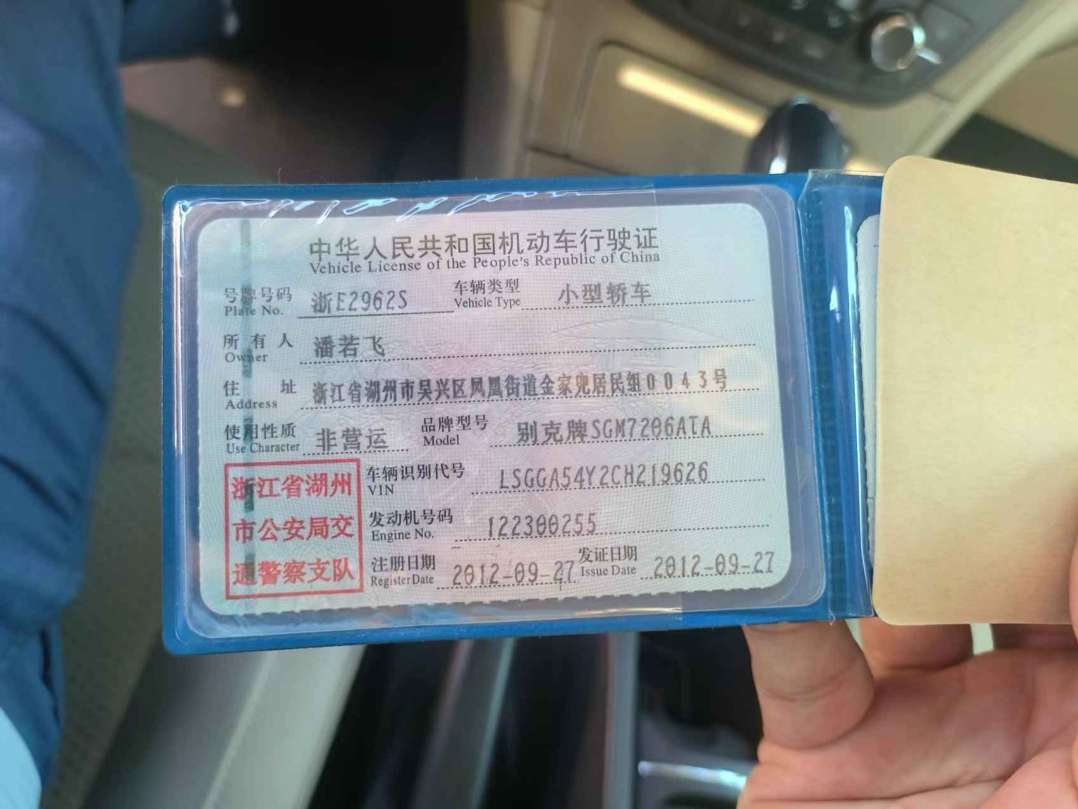 中华人民共和国机动车行驶证
Vehicle License of the People's Republic of China
号牌号码 浙E2962S 车辆类型 小型轿车
Plate No. Vehicle Type
所有人 潘若飞
Owner
住址 浙江省湖州市吴兴区凤凰街道金家兜居民组0043号
Address
使用性质 非营运 品牌型号 别克牌SGM7206ATA
Use Character Model
浙江省湖州
市公安局交
通警察支队
车辆识别代号 LSGGA54Y2CH219626
VIN
发动机号码 122300255
Engine No.
注册日期 2012-09-27 发证日期 2012-09-27
Register Date Issue Date